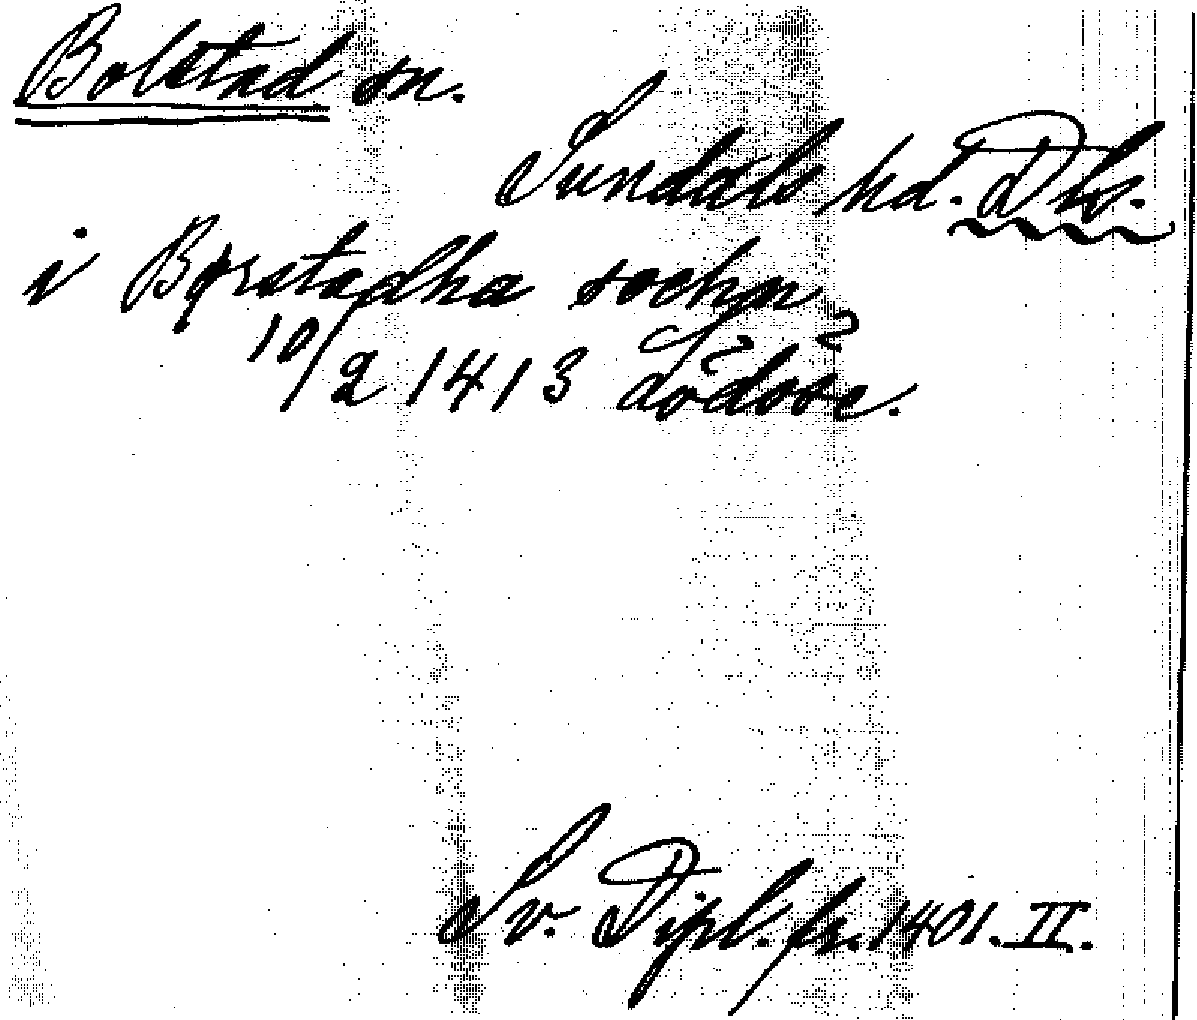 Bolstad sn.
Sundals hd. Dls.
i Bǫrstadha sochn
10/2 1413 Lödöse.
Sv. Dipl. fr. 1401. II.